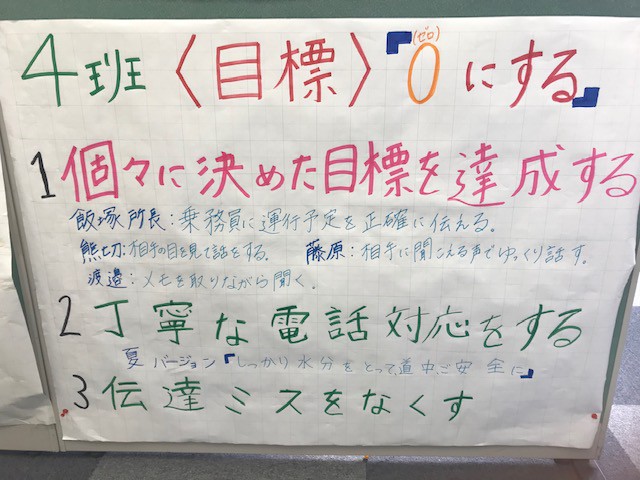 4班〈目標〉『0(ゼロ)にする』
1 個々に決めた目標を達成する
飯塚所長:乗務員に運行予定を正確に伝える。
熊切:相手の目を見て話をする。 藤原:相手に聞こえる声でゆっくり話す。
渡邉:メモを取りながら聞く。
2 丁寧な電話対応をする
夏バージョン『しっかり水分をとって、道中、ご安全に』
3 伝達ミスをなくす